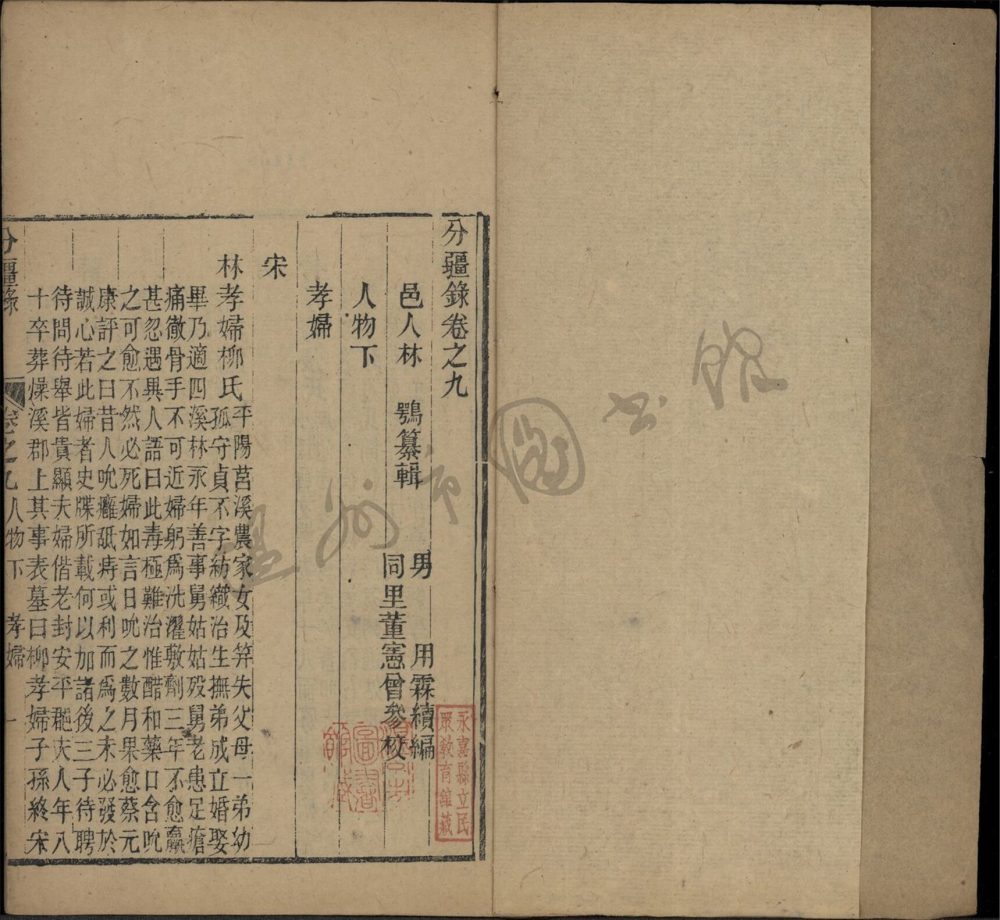 分疆錄卷之九
邑人林　鶚纂輯
男　用霖續編
同里董憲曾參校
人物下
孝婦
宋
林孝婦柳氏
平陽莒溪農家女及笄失父母一弟幼
孤守貞不字紡織治生撫弟成立婚娶
畢乃適四溪林永年善事舅姑姑歿舅老患足瘡
痛徹骨手不可近婦躬爲洗濯敷劑三年不愈羸
甚忽遇異人語曰此毒極難治惟醋和藥口含吮
之可愈不然必死婦如言日吮之數月果愈蔡元
康評之曰昔人吮癰舐痔或利而爲之未必發於
誠心若此婦者史牒所載何以加諸後三子待聘
待問待舉皆貴顯夫婦偕老封安平郡夫人年八
十卒葬燥溪郡上其事表墓曰柳孝婦子孫終宋
分疆錄
卷之九人物下　孝婦　一
永嘉縣立民
眾教育館藏
溫州市圖書館